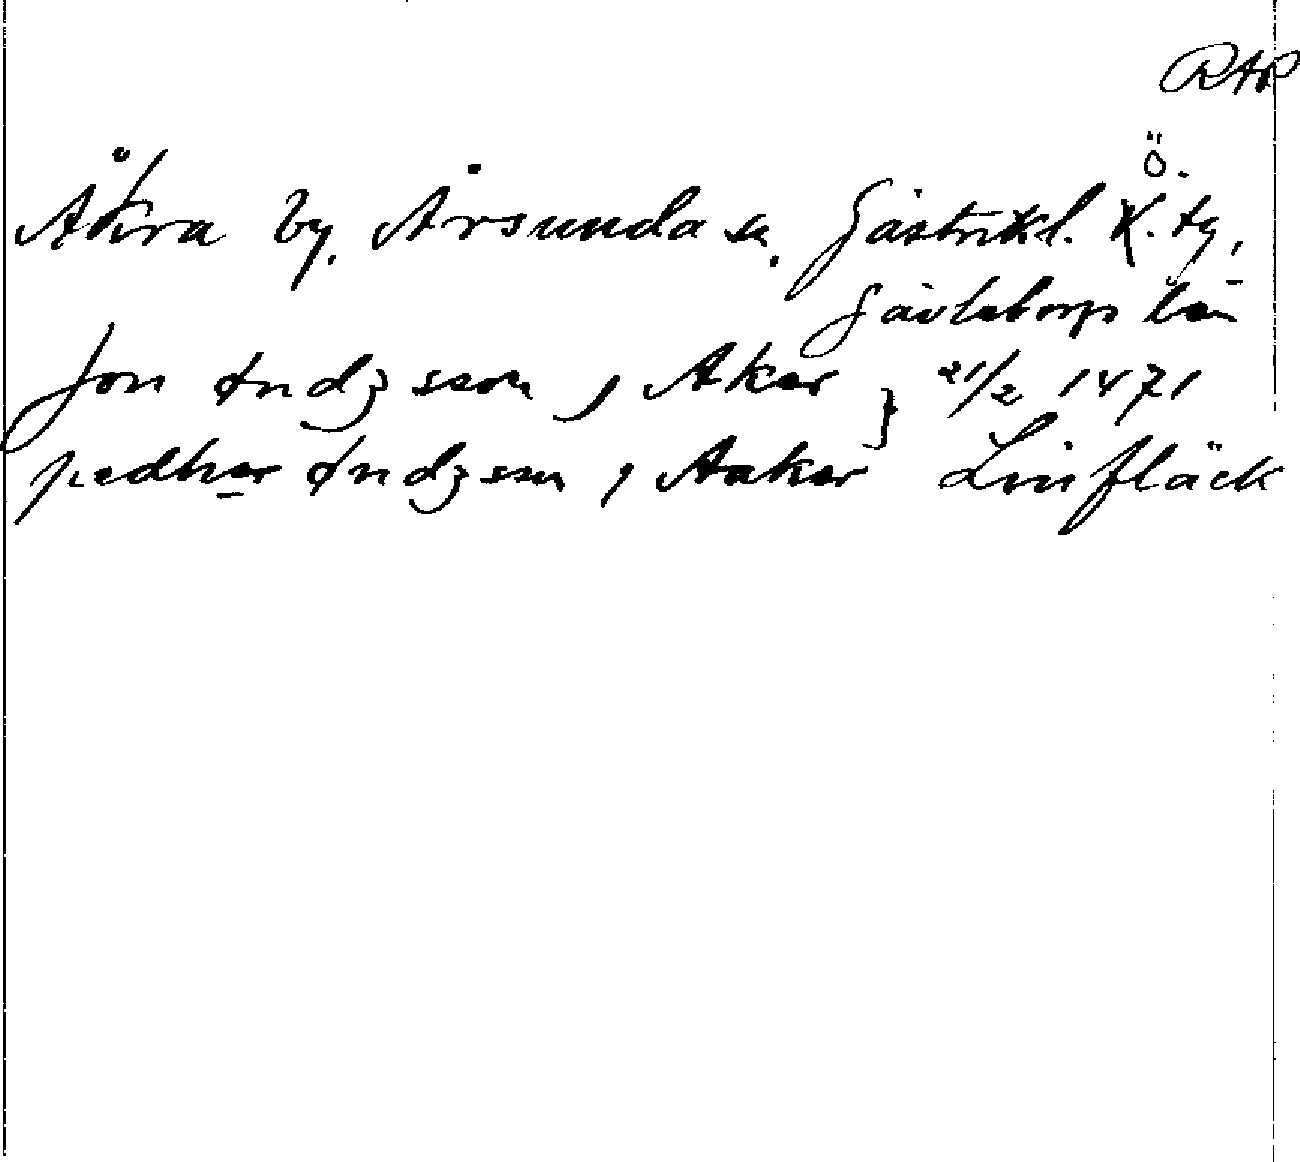 RAP
Åkra by, Årsunda sn, Gästrikl. Ö. tg,
Gävleborgs län
Jon ændzsson, j Aker } 21/2 1471
pædhær ændzson, j Aaker Linfläck